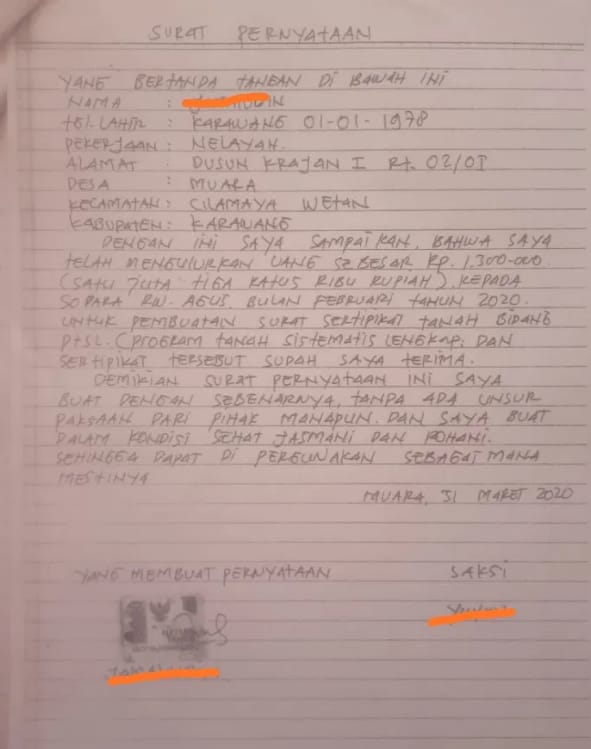 SURAT PERNYATAAN
YANG BERTANDA TANGAN DI BAWAH INI
NAMA :
tGl. LAHIR : KARAWANG 01-01-1978
PEKERJAAN : NELAYAH.
ALAMAT : DUSUN KRAJAN I Rt. 02/01
DESA : MUARA
KECAMATAN : CILAMAYA WETAN
KABUPATEN : KARAWANG
DENGAN INI SAYA SAMPAIKAN, BAHWA SAYA
TELAH MENGULURKAN UANG SEBESAR RP. 1.300.000
(SATU JUTA TIGA RATUS RIBU RUPIAH). KEPADA
SOPARA RW. AGUS, BULAN FEBRUARI TAHUN 2020.
UNTUK PEMBUATAN SURAT SERTIPIKAT TANAH BIDANG
PTSL. (PROGRAM TANAH SISTEMATIS LENGKAP. DAN
SERTIPIKAT TERSEBUT SUDAH SAYA TERIMA.
DEMIKIAN SURAT PERNYATAAN INI SAYA
BUAT DENGAN SEBENARNYA, TANPA ADA UNSUR
PAKSAAN DARI PIHAK MANAPUN. DAN SAYA BUAT
DALAM KONDISI SEHAT JASMANI DAN ROHANI.
SEHINGGA DAPAT DI PERGUNAKAN SEBAGAI MANA
MESTINYA
MUARA, 31 MARET 2020
YANG MEMBUAT PERNYATAAN SAKSI